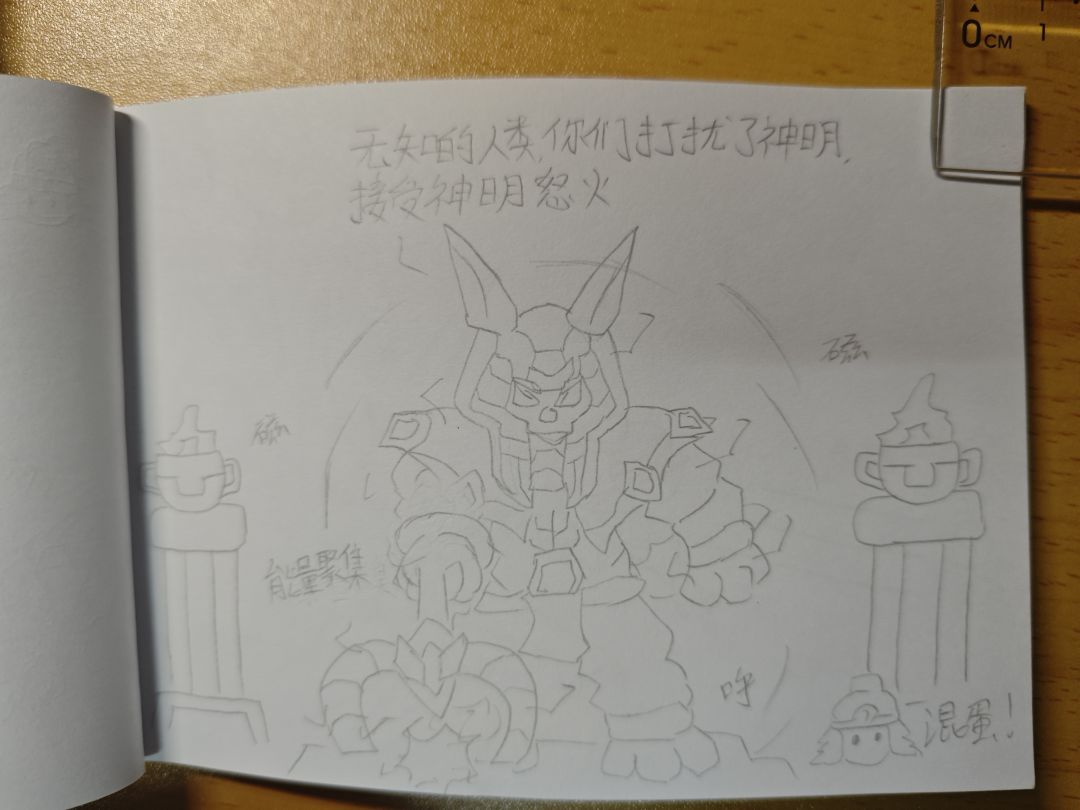 无知的人类,你们打扰了神明,
接受神明怒火
能量聚集
混蛋!
0CM
1